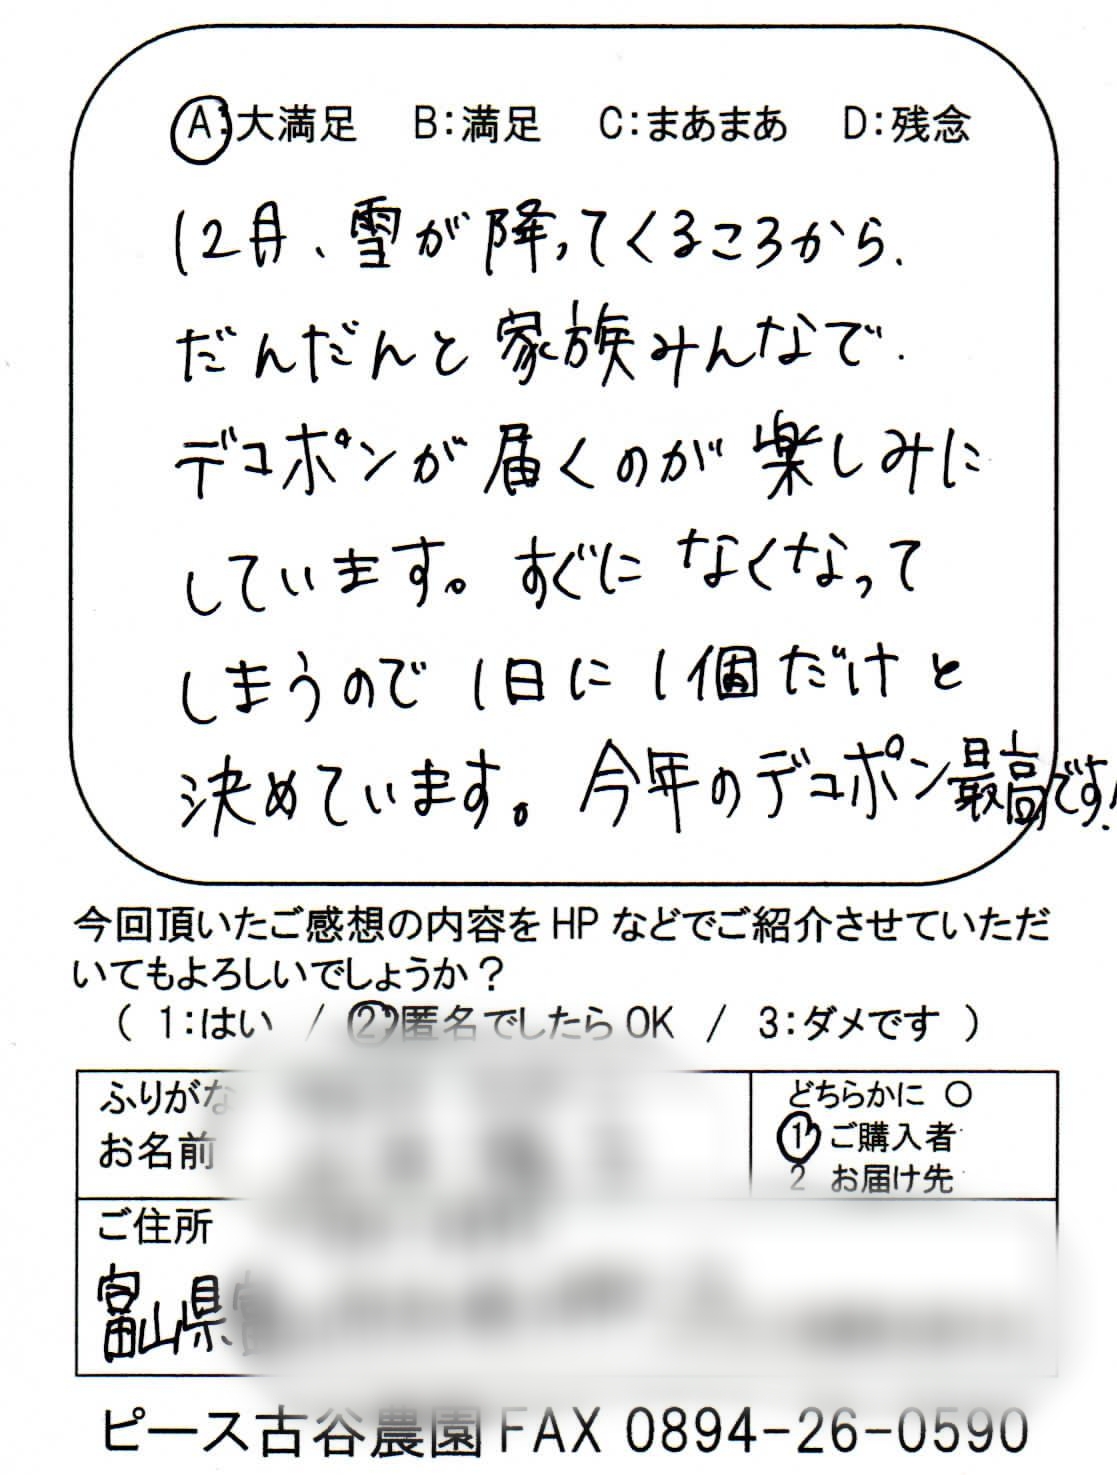 A:大満足 B:満足 C:まあまあ D:残念
12月、雪が降ってくるころから、
だんだんと家族みんなで、
デコポンが届くのが楽しみに
しています。すぐになくなって
しまうので1日に1個だけと
決めています。今年のデコポン最高です!
今回頂いたご感想の内容をHPなどでご紹介させていただ
いてもよろしいでしょうか?
( 1:はい / 2:匿名でしたらOK / 3:ダメです )
ふりがな
お名前
どちらかに ○
1 ご購入者
2 お届け先
ご住所
富山県
ピース古谷農園 FAX 0894-26-0590